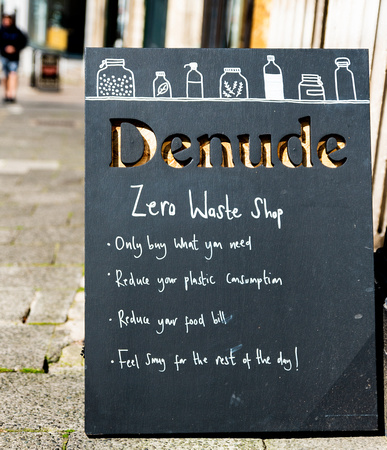 Denude
Zero Waste Shop
· Only buy what you need
· Reduce your plastic consumption
· Reduce your food bill
· Feel smug for the rest of the day!